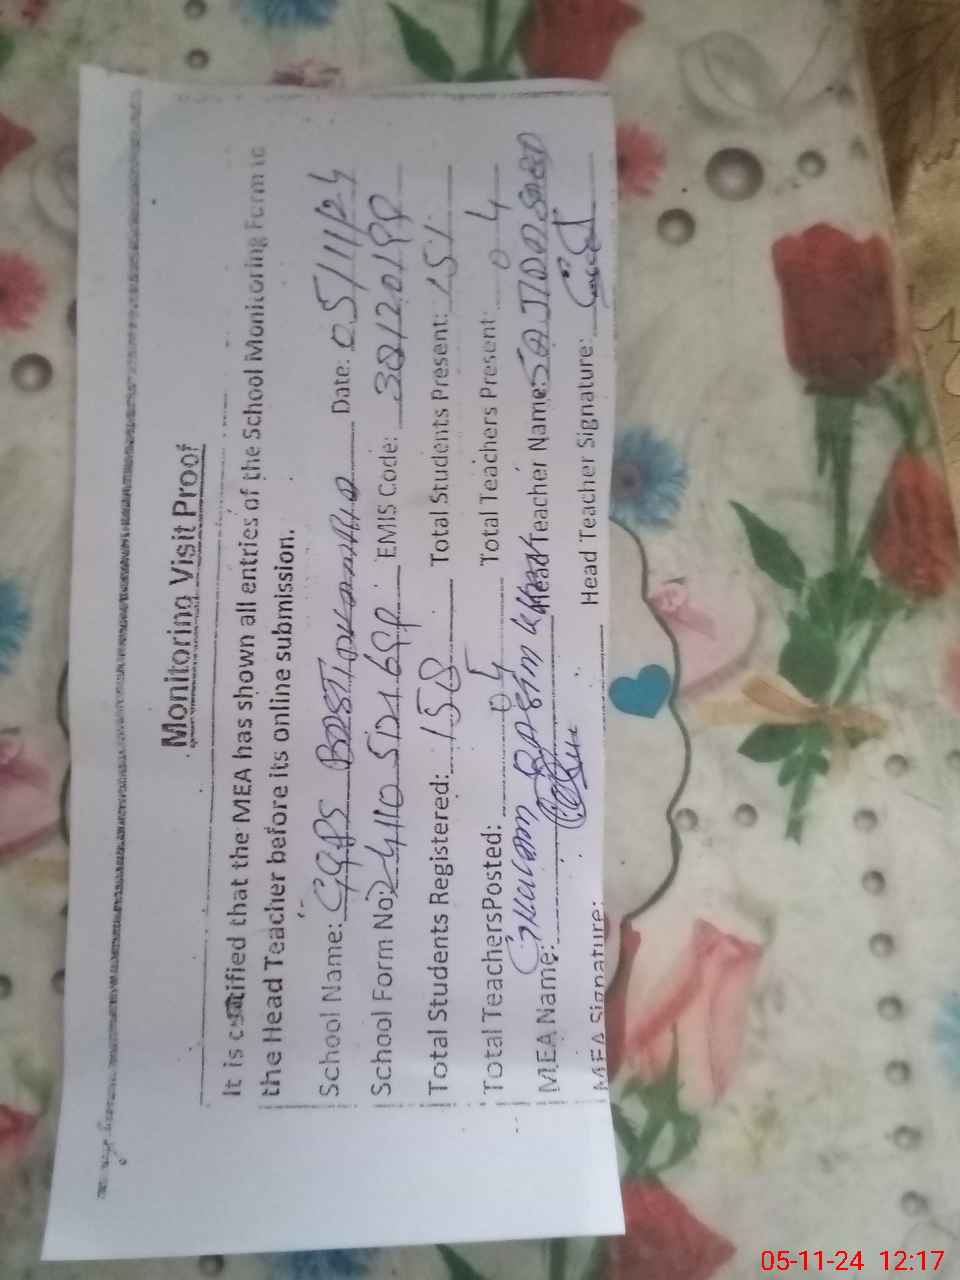 Monitoring Visit Proof
It is certified that the MEA has shown all entries of the School Monitoring Form to
the Head Teacher before its online submission.
School Name: GGPS BASTI Date: 05/11/24
School Form No: EMIS Code:
Total Students Registered: 158 Total Students Present: 151
Total TeachersPosted: 05 Total Teachers Present: 04
MEA Name: GHULAM QASIM Head Teacher Name: SAJIDA SAEED
MEA Signature: Head Teacher Signature:
05-11-24 12:17